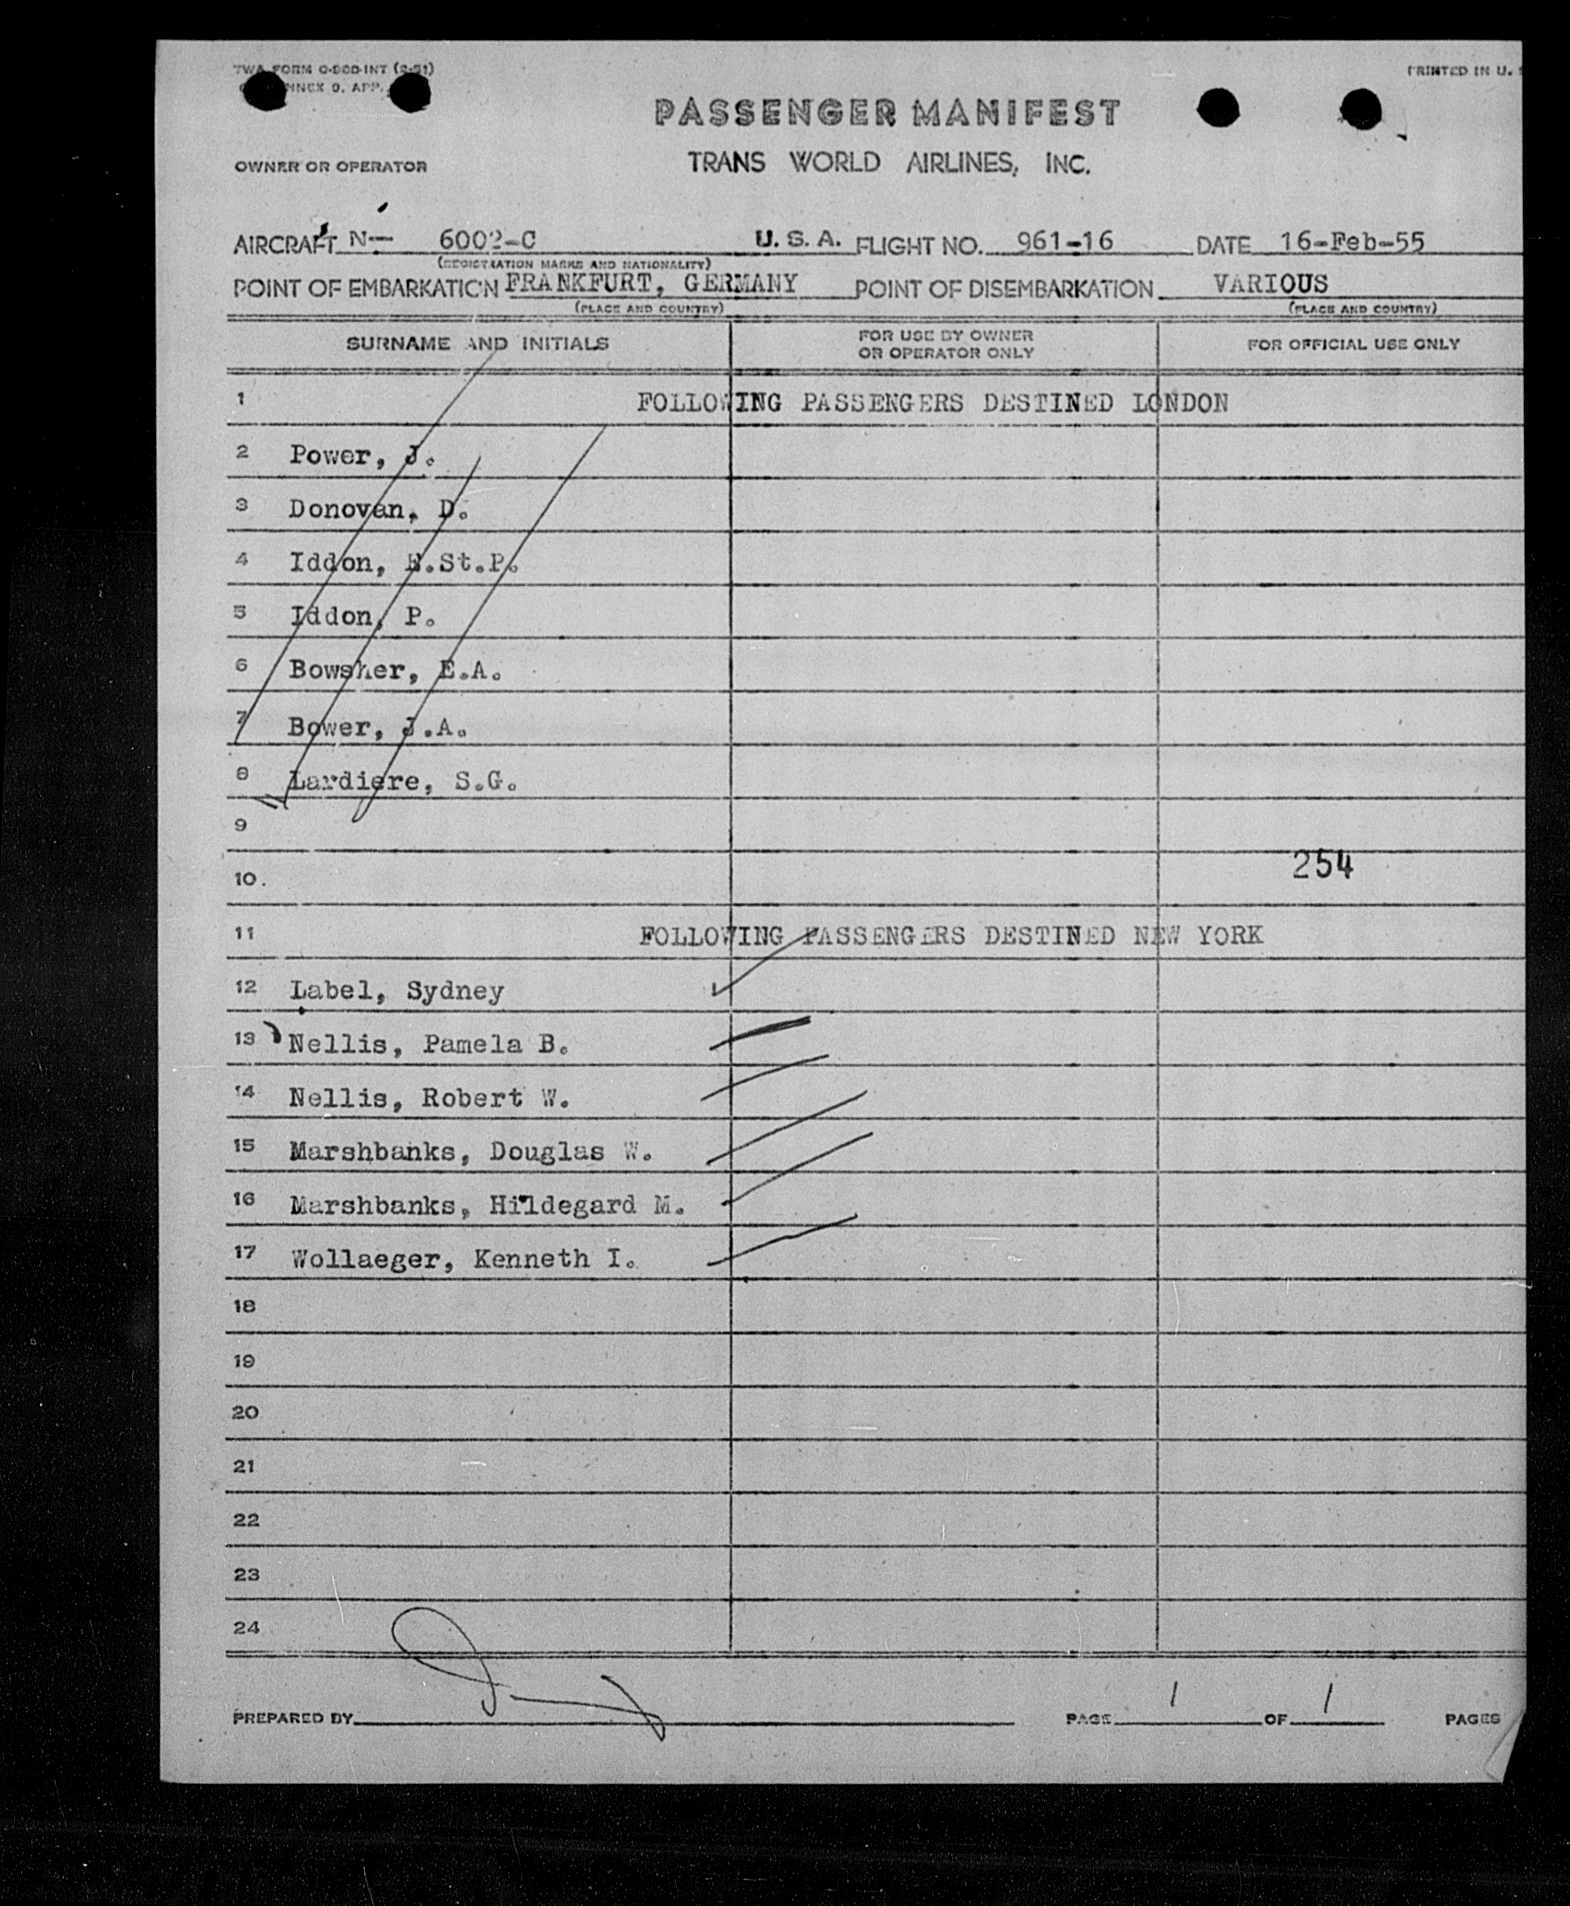 TWA FORM O-90D-INT (2-51)
ANNEX 9, APP.
PRINTED IN U.
PASSENGER MANIFEST
OWNER OR OPERATOR
TRANS WORLD AIRLINES, INC.
AIRCRAFT N- 6002-C U.S.A. FLIGHT NO. 961-16 DATE 16-Feb-55
(REGISTRATION MARKS AND NATIONALITY)
POINT OF EMBARKATION FRANKFURT, GERMANY POINT OF DISEMBARKATION VARIOUS
(PLACE AND COUNTRY) (PLACE AND COUNTRY)
SURNAME AND INITIALS FOR USE BY OWNER OR OPERATOR ONLY FOR OFFICIAL USE ONLY
1 FOLLOWING PASSENGERS DESTINED LONDON
2 Power, J.
3 Donovan, D.
4 Iddon, E.St.P.
5 Iddon, P.
6 Bowsher, E.A.
7 Bower, J.A.
8 Lardiere, S.G.
9
10. 254
11 FOLLOWING PASSENGERS DESTINED NEW YORK
12 Label, Sydney
13 Nellis, Pamela B.
14 Nellis, Robert W.
15 Marshbanks, Douglas W.
16 Marshbanks, Hildegard M.
17 Wollaeger, Kenneth I.
18
19
20
21
22
23
24
PREPARED BY PAGE 1 OF 1 PAGES